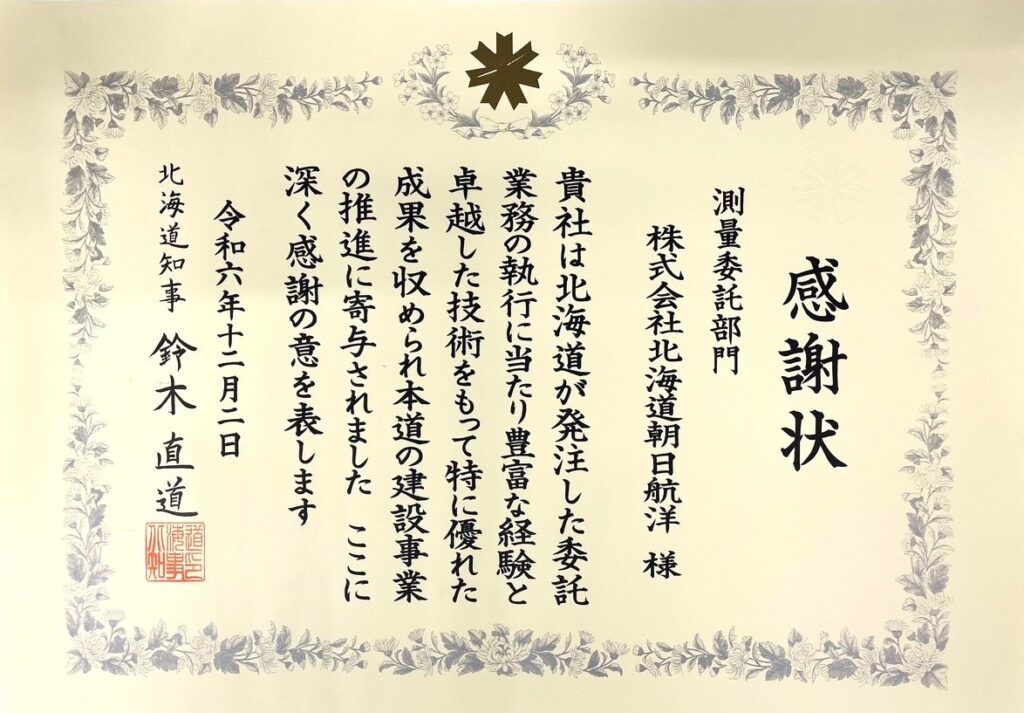 感謝状
測量委託部門
株式会社北海道朝日航洋 様
貴社は北海道が発注した委託
業務の執行に当たり豊富な経験と
卓越した技術をもって特に優れた
成果を収められ本道の建設事業
の推進に寄与されました ここに
深く感謝の意を表します
令和六年十二月二日
北海道知事 鈴木直道